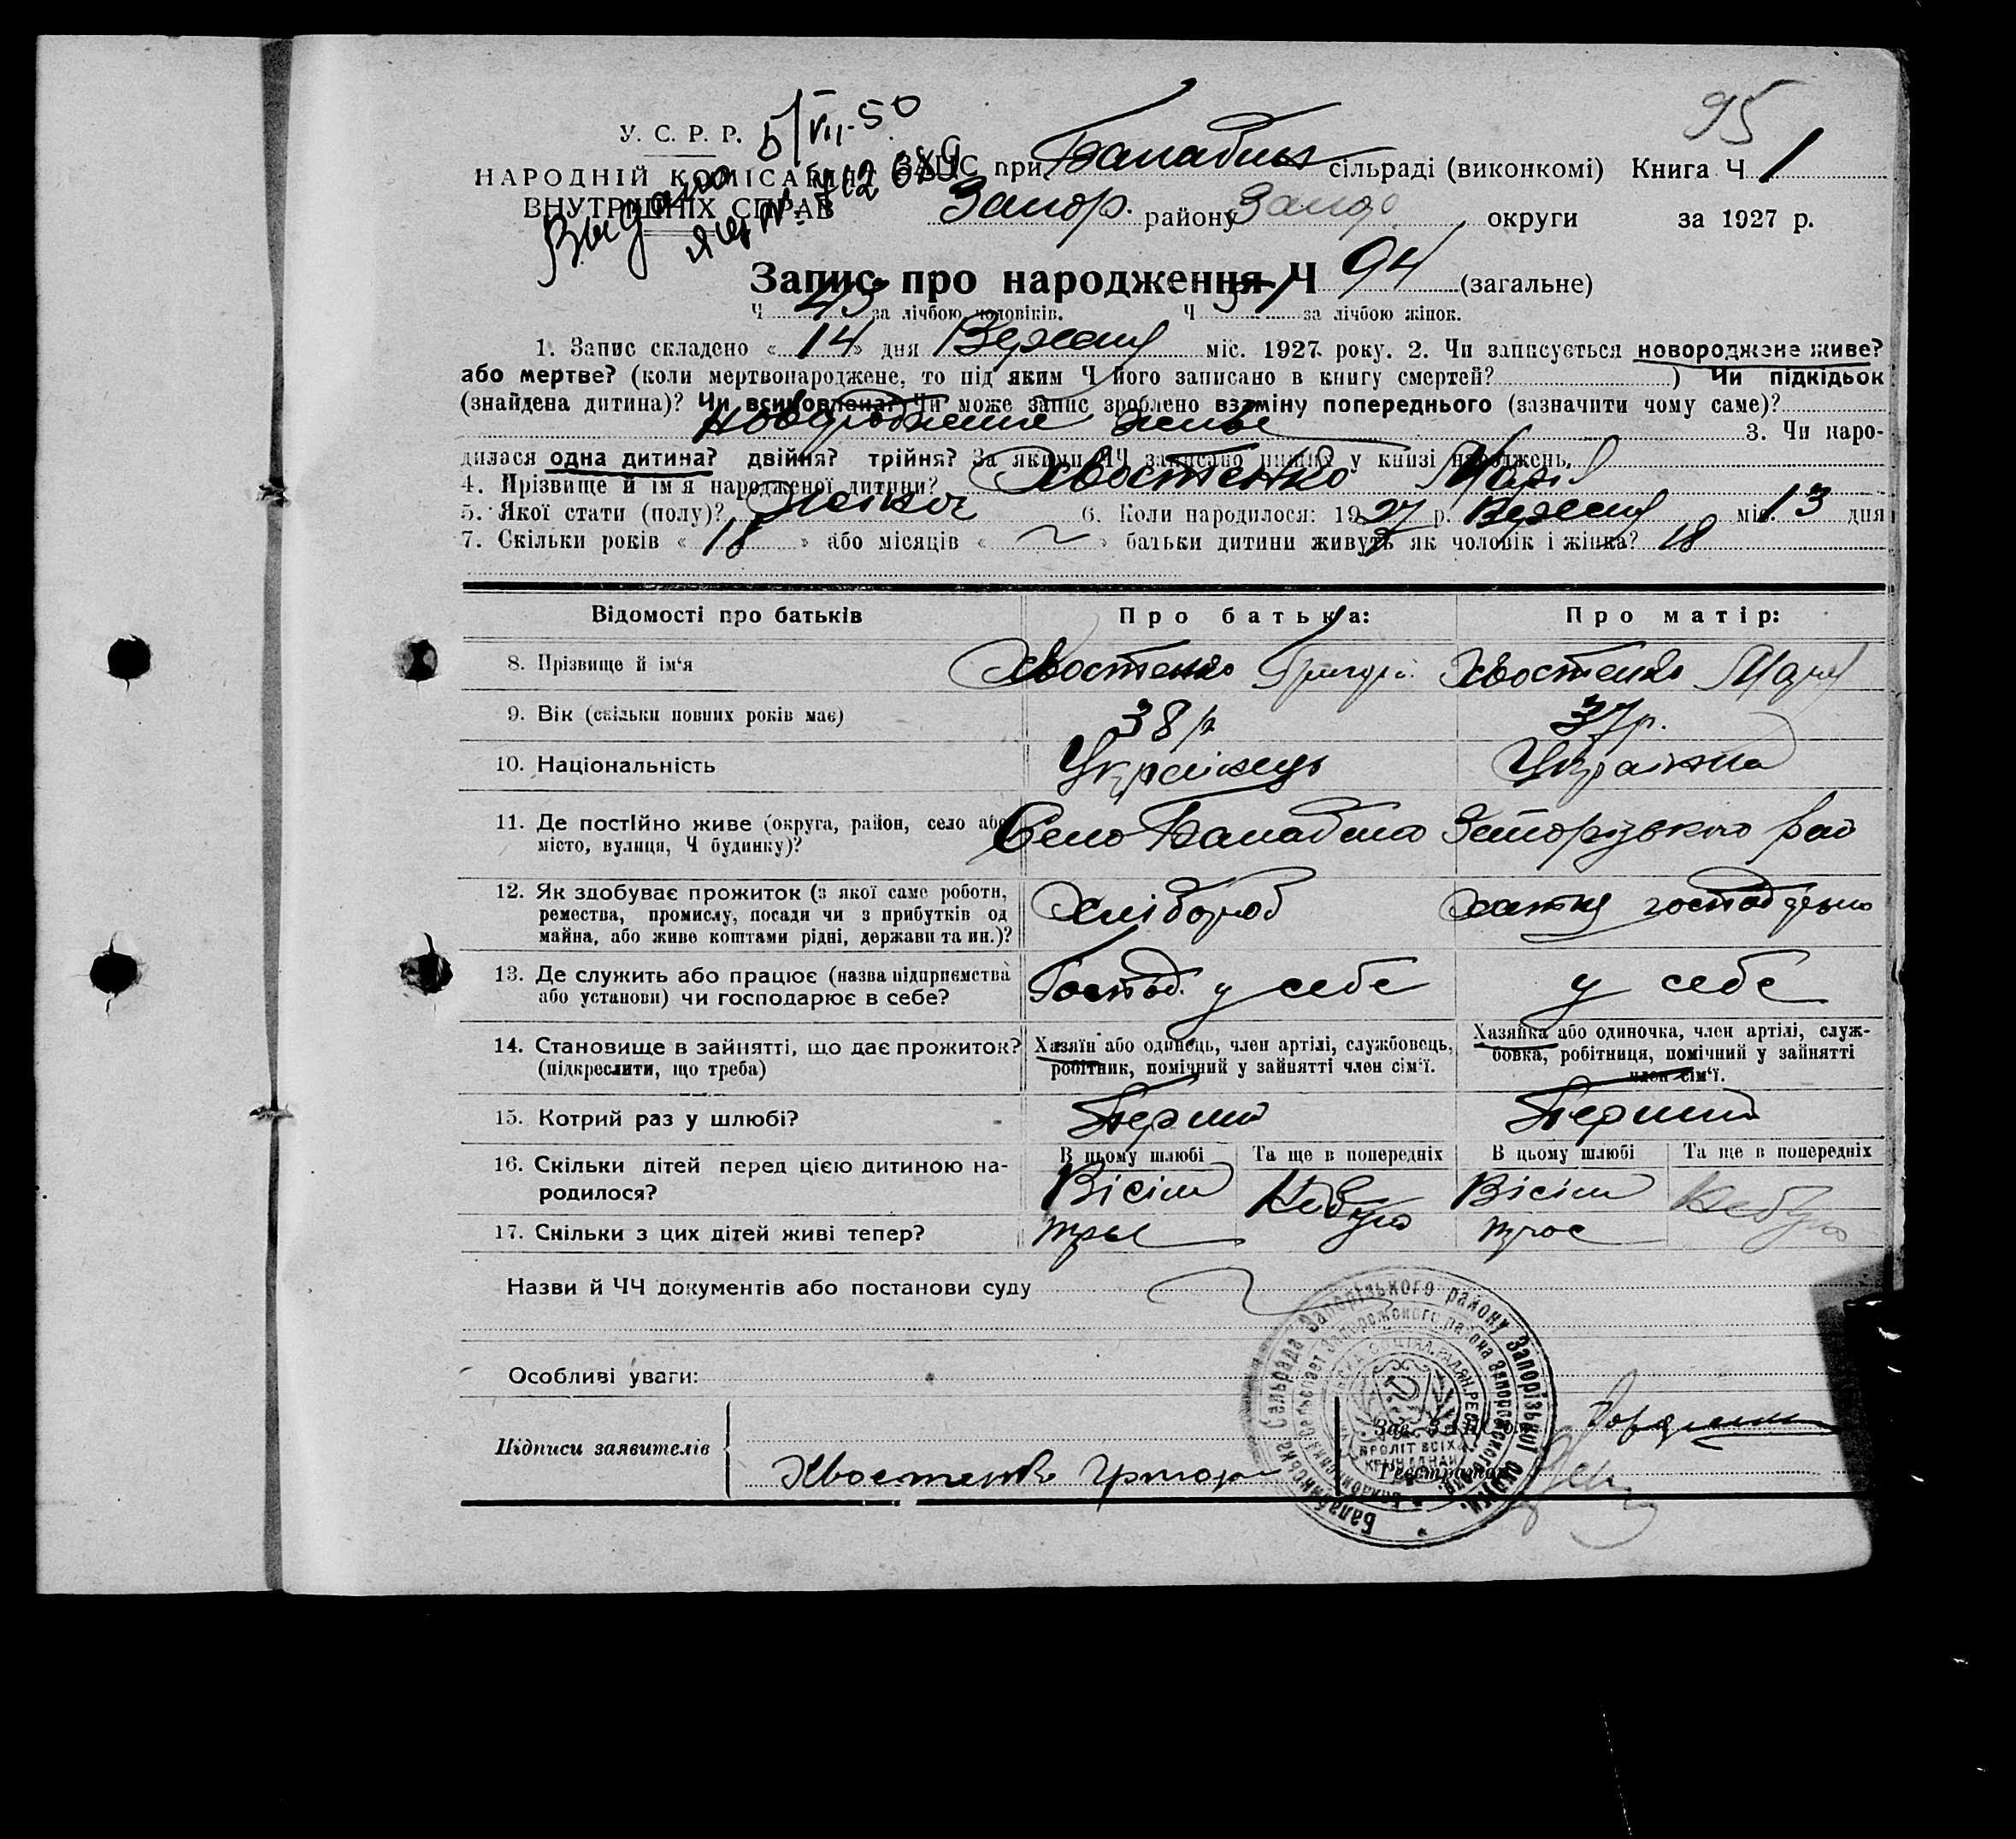 95
У. С. Р. Р. 5/VII-50
НАРОДНІЙ КОМІСАРІЯТ ЗАГС при Балабин сільраді (виконкомі) Книга Ч 1
ВНУТРІШНІХ СПРАВ Запор. району Запор округи за 1927 р.
Выдано
Запис про народження Ч 94 (загальне)
Ч 43 за лічбою чоловіків. Ч за лічбою жінок.
1. Запис складено « 14 » дня Вересня міс. 1927 року. 2. Чи записується новороджене живе?
або мертве? (коли мертвонароджене, то під яким Ч його записано в книгу смертей? ) Чи підкідьок
(знайдена дитина)? Чи всиновлена? Чи може запис зроблено взаміну попереднього (зазначити чому саме)?
новородженне живе 3. Чи наро-
дилася одна дитина? двійня? трійня? За якими ЧЧ записано инших у книзі народжень.
4. Прізвище й ім'я народженої дитини? Хвостенко Марія
5. Якої стати (полу)? жіноч 6. Коли народилося: 1927 р. Вересня міс. 13 дня
7. Скільки років « 18 » або місяців « » батьки дитини живуть як чоловік і жінка? 18
Відомості про батьків Про батька: Про матір:
8. Прізвище й ім'я Хвостенко Григорій Хвостенко Марія
9. Вік (скільки повних років має) 38 р 37 р.
10. Національність Українець Українка
11. Де постійно живе (округа, район, село або Село Балабино Запорізького рай
місто, вулиця, Ч будинку)?
12. Як здобуває прожиток (з якої саме роботи, Хлібороб хатня господарка
ремества, промислу, посади чи з прибутків од
майна, або живе коштами рідні, держави та ин.)?
13. Де служить або працює (назва підприємства Господ. у себе у себе
або установи) чи господарює в себе?
14. Становище в зайнятті, що дає прожиток? Хазяїн або одинець, член артілі, службовець, Хазяйка або одиночка, член артілі, служ-
(підкреслити, що треба) робітник, помічний у зайнятті член сім'ї. бовка, робітниця, помічний у зайнятті
член сім'ї.
15. Котрий раз у шлюбі? Перший Перший
В цьому шлюбі Та ще в попередніх В цьому шлюбі Та ще в попередніх
16. Скільки дітей перед цією дитиною на- Вісім Небуло Вісім Небуло
родилося?
17. Скільки з цих дітей живі тепер? троє троє
Назви й ЧЧ документів або постанови суду
Особливі уваги:
Підписи заявителів Хвостенко Григор
Зав. ЗАГС'ом
Реєстратор
Балабинська Сельрада Запорізького району Запорізької округи.